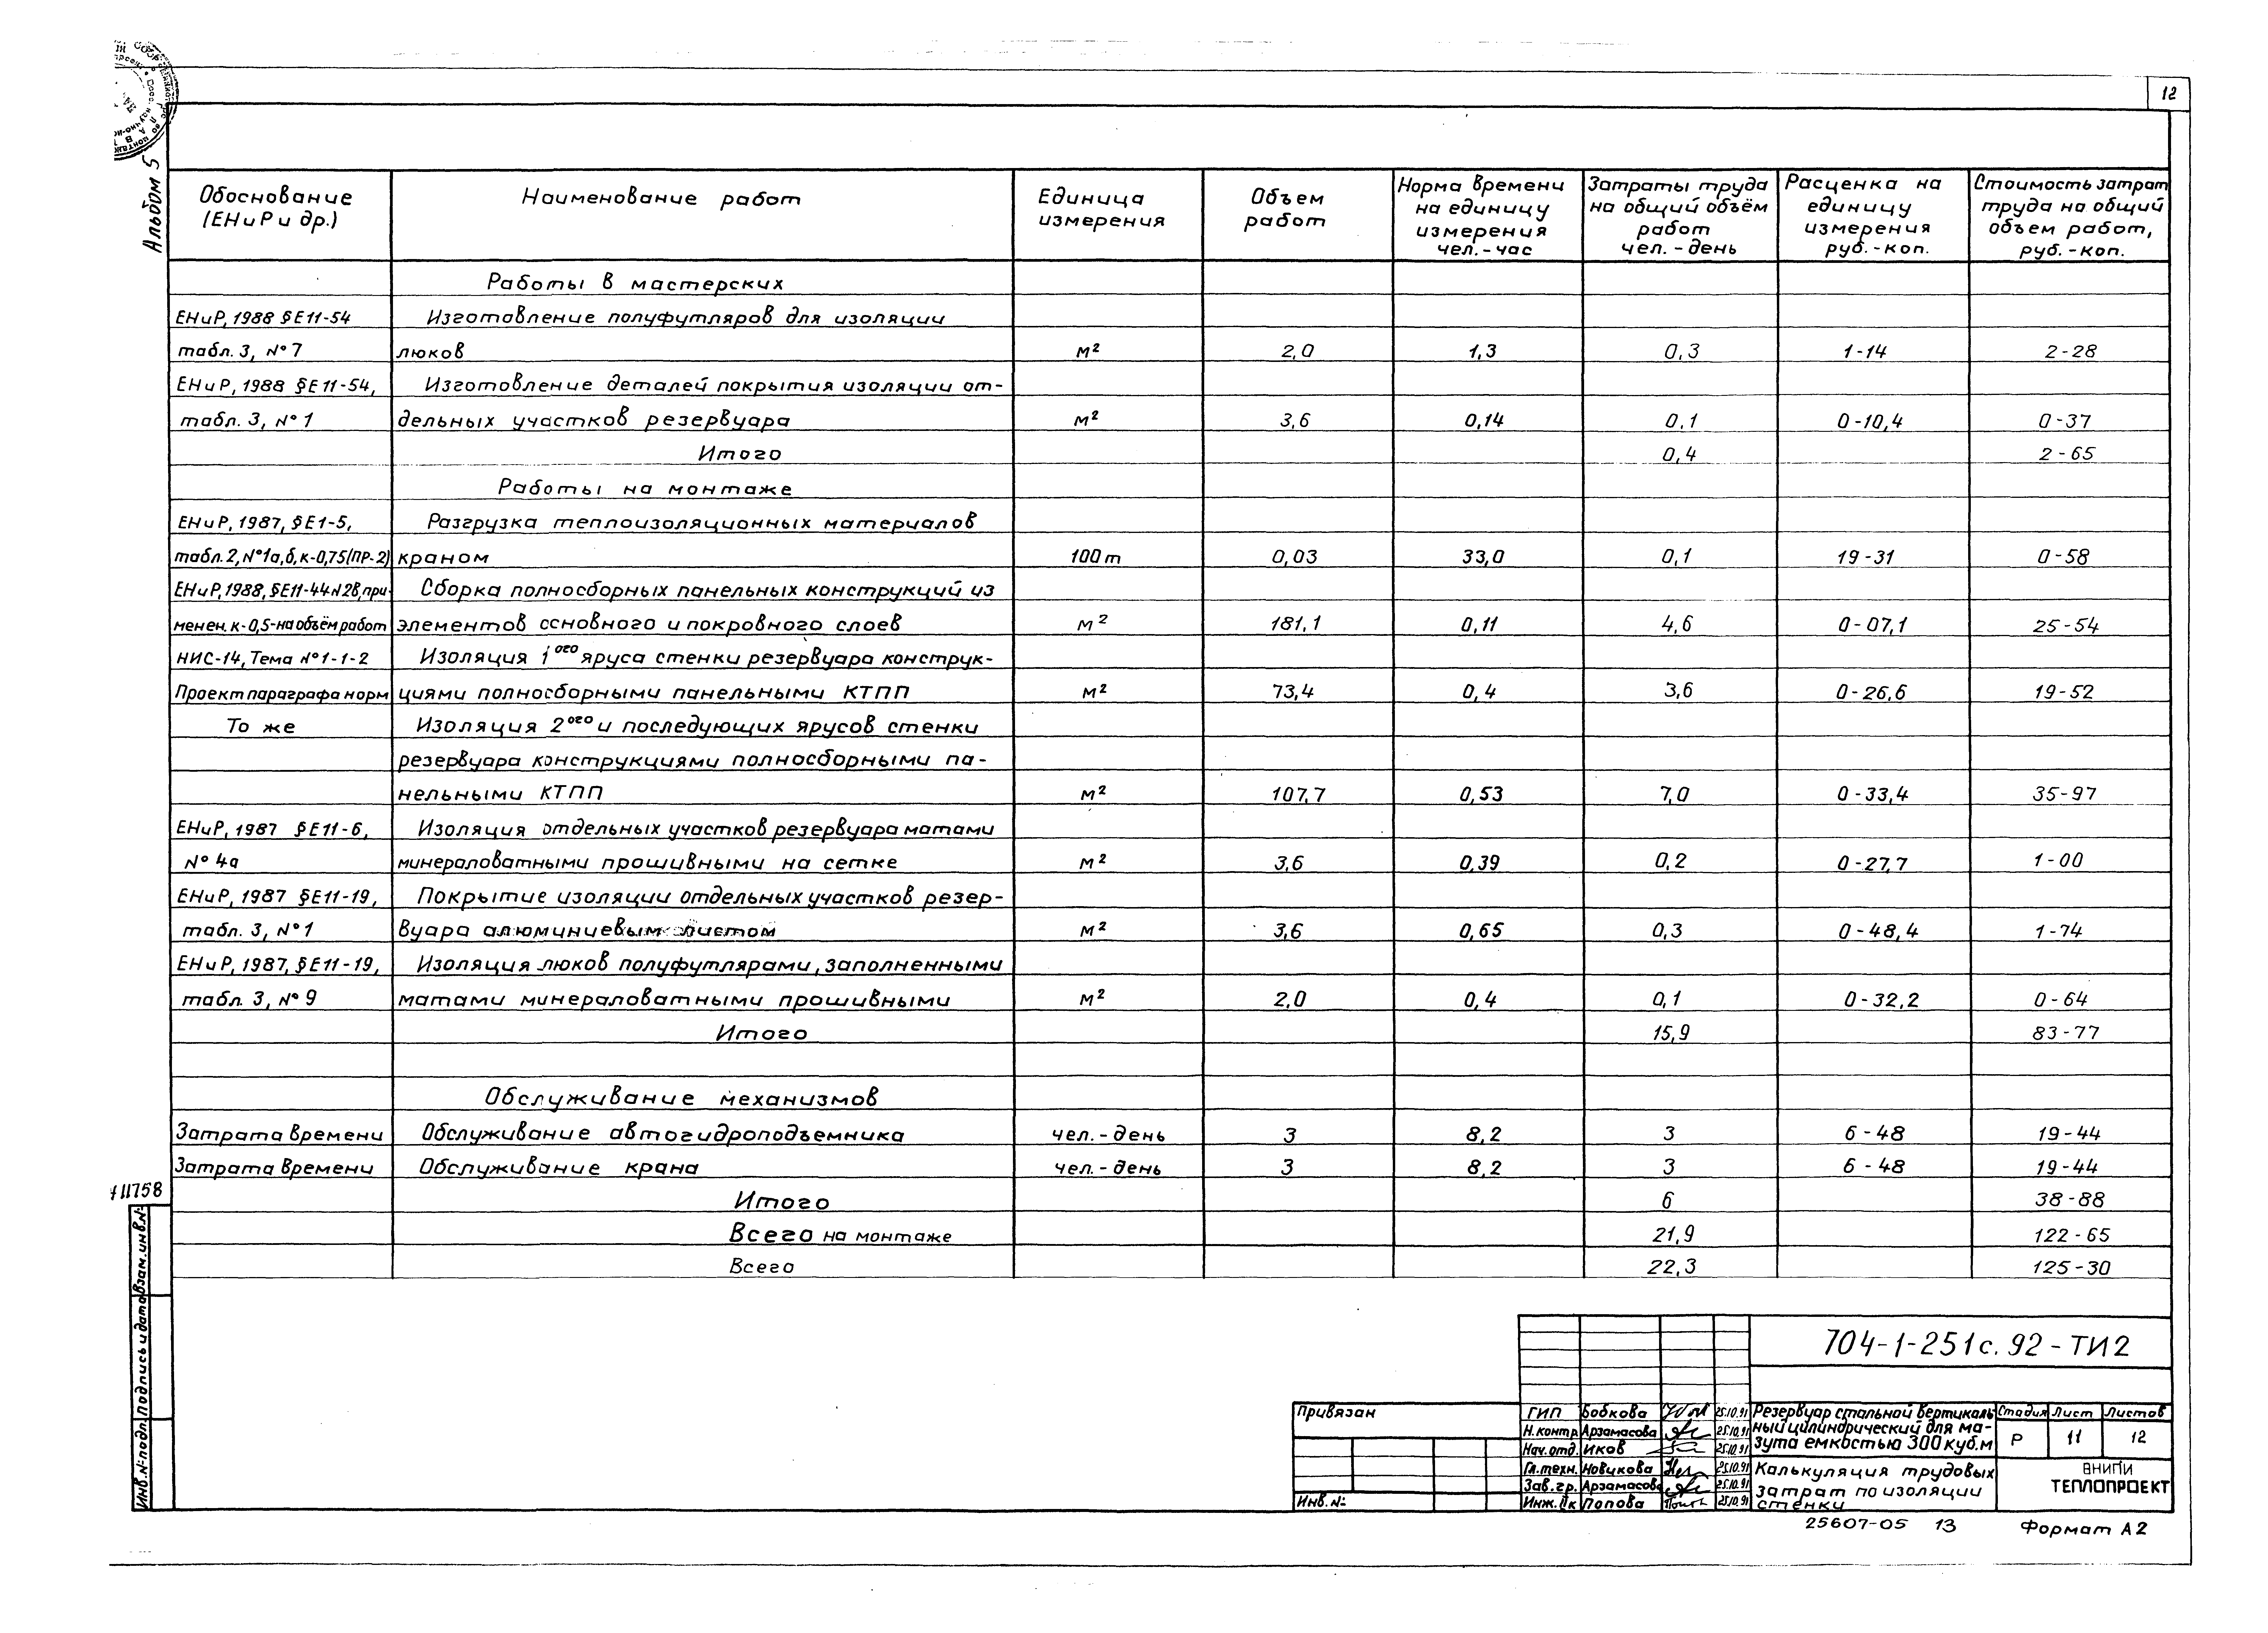 12
Альбом 5
Обоснование (ЕНиР и др.) Наименование работ Единица измерения Объем работ Норма времени на единицу измерения чел.-час Затраты труда на общий объём работ чел.-день Расценка на единицу измерения руб.-коп. Стоимость затрат труда на общий объем работ, руб.-коп.
Работы в мастерских
ЕНиР, 1988 §Е11-54 Изготовление полуфутляров для изоляции
табл. 3, №7 люков м² 2,0 1,3 0,3 1-14 2-28
ЕНиР, 1988 §Е11-54, Изготовление деталей покрытия изоляции от-
табл. 3, №1 дельных участков резервуара м² 3,6 0,14 0,1 0-10,4 0-37
Итого 0,4 2-65
Работы на монтаже
ЕНиР, 1987, §Е1-5, Разгрузка теплоизоляционных материалов
табл. 2, №1а,б, к-0,75(ПР-2) краном 100т 0,03 33,0 0,1 19-31 0-58
ЕНиР, 1988, §Е11-44 №2в, при- Сборка полносборных панельных конструкций из
менен. к-0,5-на объём работ элементов основного и покровного слоев м² 181,1 0,11 4,6 0-07,1 25-54
НИС-14, Тема №1-1-2 Изоляция 1ого яруса стенки резервуара конструк-
Проект параграфа норм циями полносборными панельными КТПП м² 73,4 0,4 3,6 0-26,6 19-52
То же Изоляция 2ого и последующих ярусов стенки
резервуара конструкциями полносборными па-
нельными КТПП м² 107,7 0,53 7,0 0-33,4 35-97
ЕНиР, 1987 §Е11-6, Изоляция отдельных участков резервуара матами
№ 4а минераловатными прошивными на сетке м² 3,6 0,39 0,2 0-27,7 1-00
ЕНиР, 1987 §Е11-19, Покрытие изоляции отдельных участков резер-
табл. 3, №1 вуара алюминиевым листом м² 3,6 0,65 0,3 0-48,4 1-74
ЕНиР, 1987, §Е11-19, Изоляция люков полуфутлярами, заполненными
табл. 3, № 9 матами минераловатными прошивными м² 2,0 0,4 0,1 0-32,2 0-64
Итого 15,9 83-77
Обслуживание механизмов
Затрата времени Обслуживание автогидроподъемника чел.-день 3 8,2 3 6-48 19-44
Затрата времени Обслуживание крана чел.-день 3 8,2 3 6-48 19-44
Итого 6 38-88
Всего на монтаже 21,9 122-65
Всего 22,3 125-30
11758
Взам.инв.№
Подпись и дата
Инв.№ подл.
704-1-251с.92-ТИ2
Привязан
Инв.№
ГИП Бобкова 25.10.91
Н.контр Арзамасова 25.10.91
Нач.отд. Иков 25.10.91
Гл.техн. Новикова 25.10.91
Зав.гр. Арзамасова 25.10.91
Инж.IIк Попова 25.10.91
Резервуар стальной вертикаль-
ный цилиндрический для ма-
зута емкостью 300 куб.м
Стадия Лист Листов
Р 11 12
Калькуляция трудовых
затрат по изоляции
стенки
ВНИПИ
ТЕПЛОПРОЕКТ
25607-05 13
Формат А2